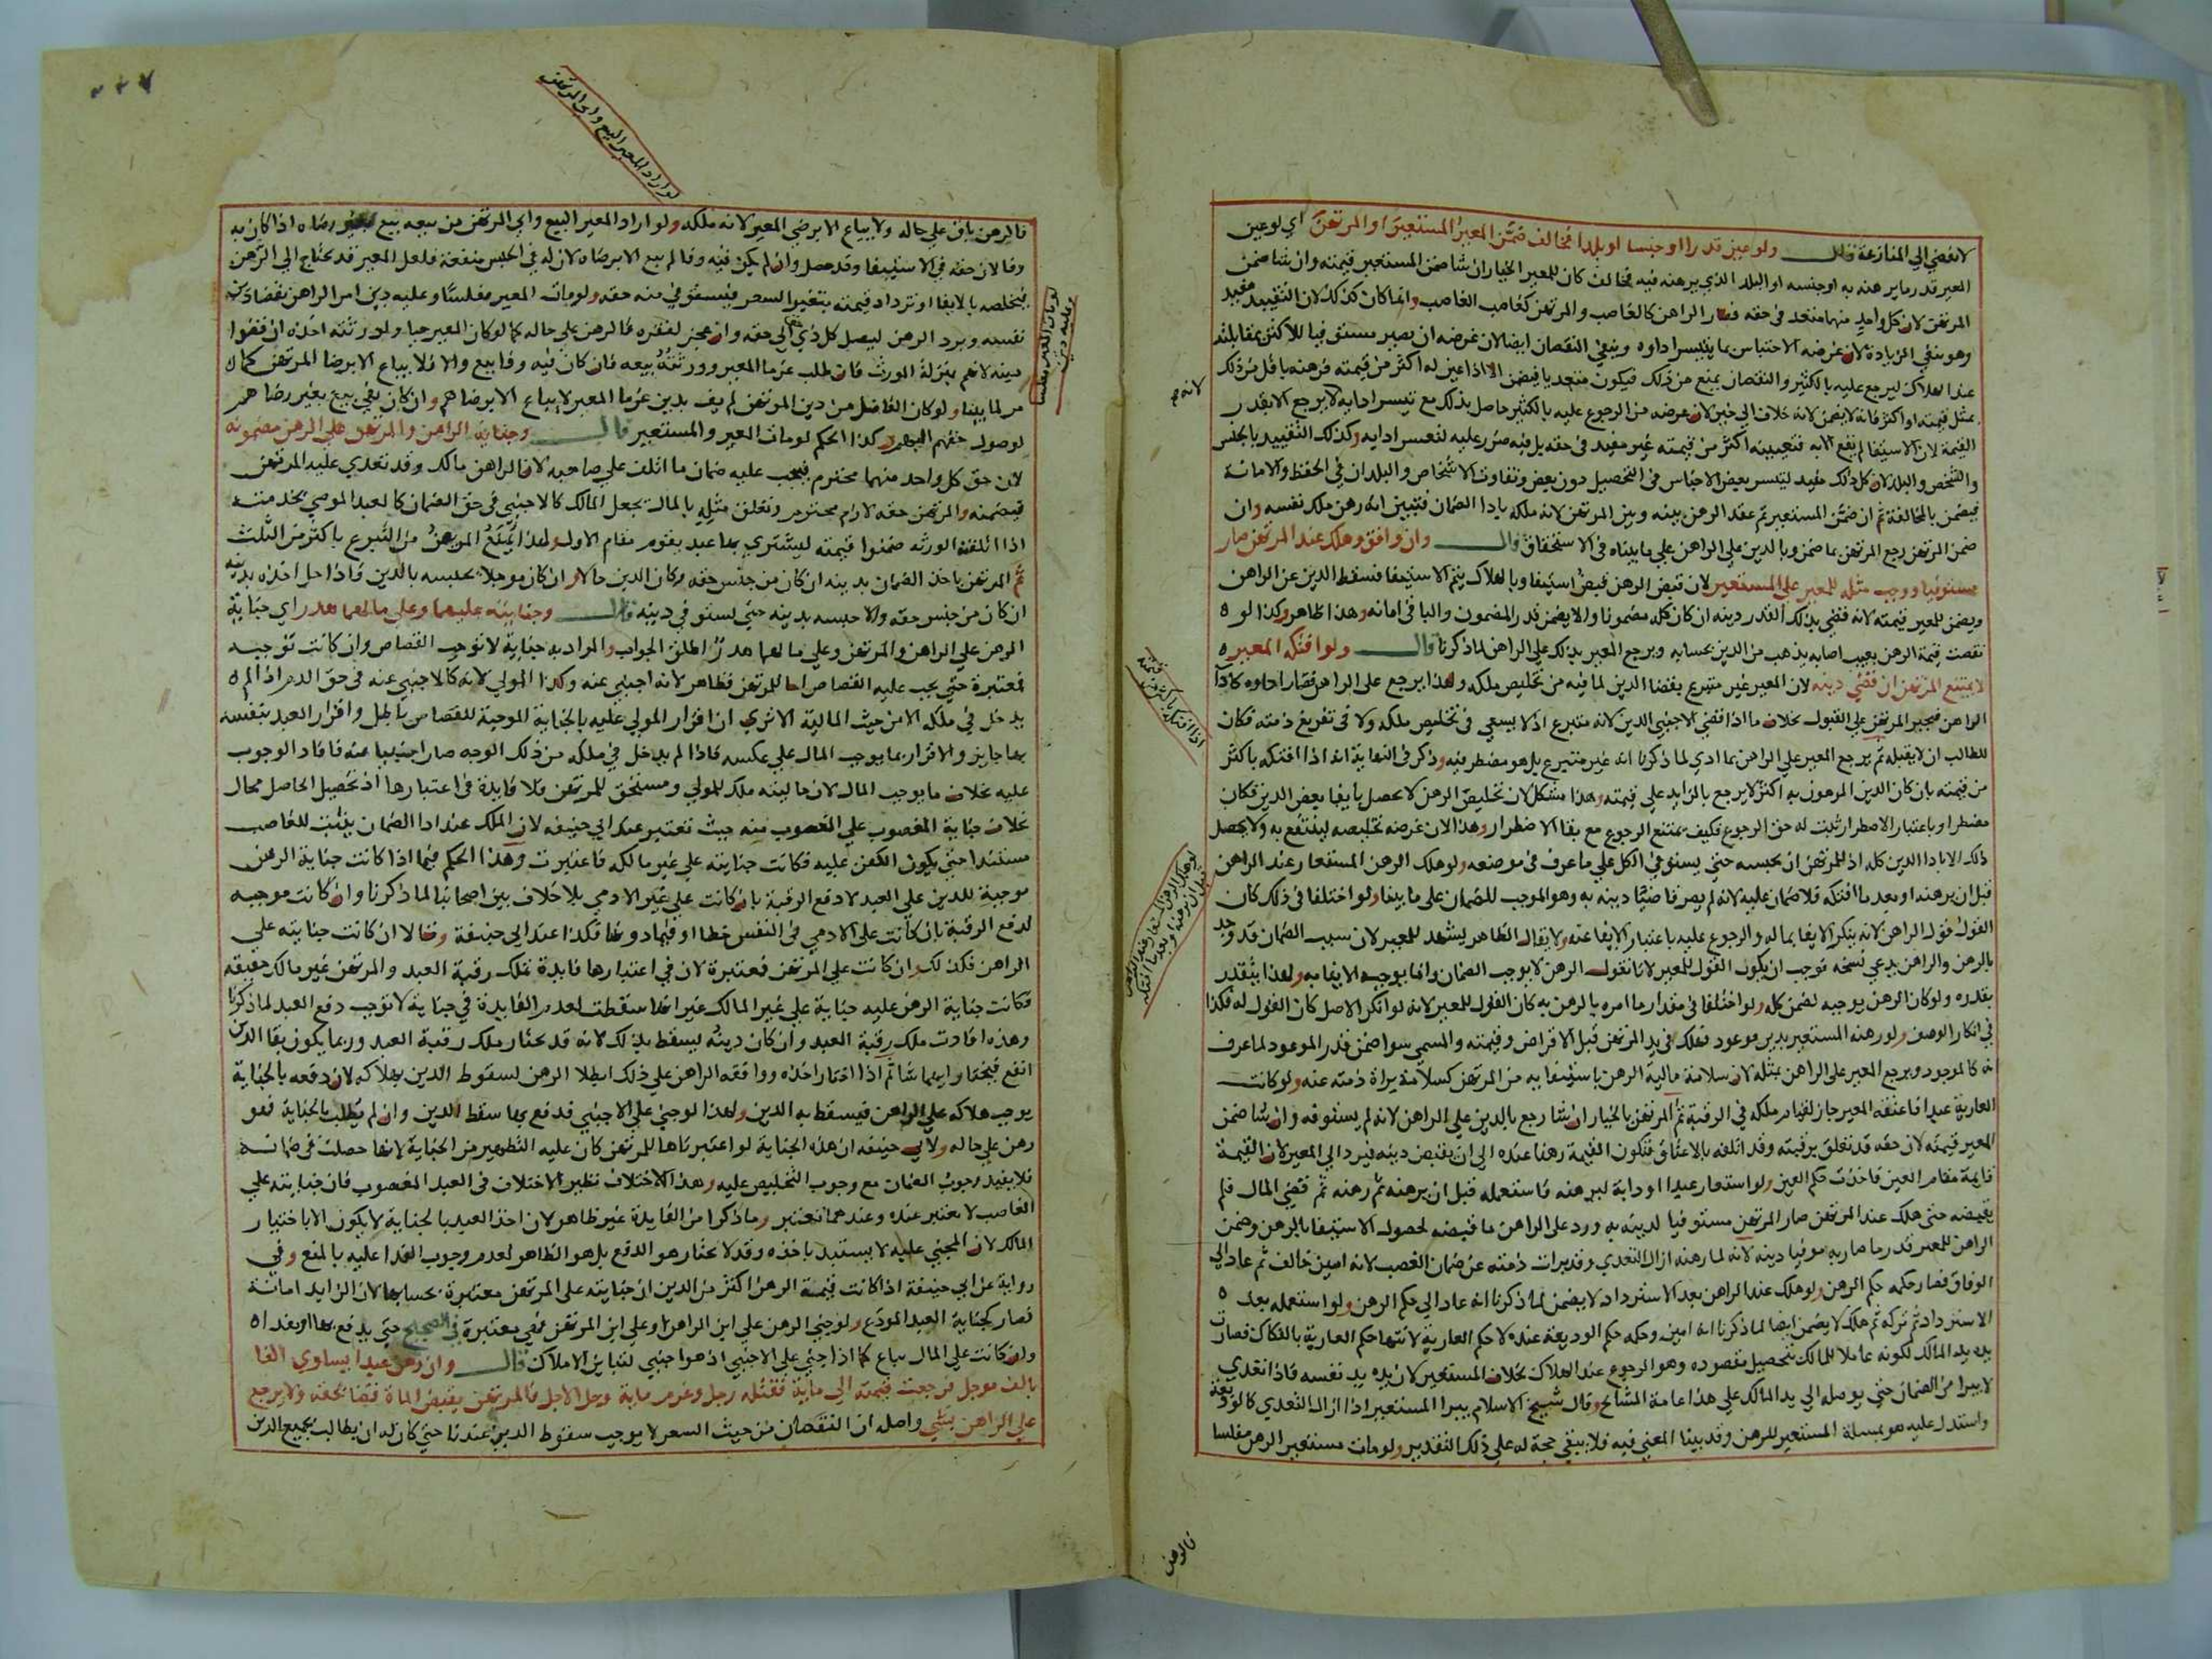 لا يفضي الي المنازعة قال ولو عين قدرا او جنسا او بلدا فخالف ضمن المعير المستعير او المرتهن اي لو عين
المعير قدر ما يرهنه به او جنسه او البلد الذي يرهنه فيه فخالف كان للمعير الخيار ان شا ضمن المستعير قيمته وان شا ضمن
المرتهن لان كل واحد منهما متعد في حقه فصار الراهن كالغاصب والمرتهن كغاصب الغاصب وانما كان كذلك لان التقييد مفيد
وهو ينفي الزيادة لان غرضه الاحتباس بما يتيسر اداوه وينفي النقصان ايضا لان غرضه ان يصير مستوفيا للاكثر بمقابلته
عند الهلاك ليرجع عليه بالكثير والنقصان يمنع من ذلك فيكون متعديا فيضمن الا اذا عين له اكثر من قيمته فرهنه باقل من ذلك
بمثل قيمته او اكثر فانه لا يضمن لانه خلاف الي خير لان غرضه من الرجوع عليه بالكثير حاصل بذلك مع تيسر ادايه لا يرجع الا بقدر
القيمة لان الاستيفا لم يقع الا به فتعيينه اكثر من قيمته غير مفيد في حقه بل فيه ضرر عليه لتعسر ادايه وكذلك التقييد بالجنس
والشخص والبلد لان كل ذلك مفيد لتيسر بعض الاجناس في التحصيل دون بعض وتفاوت الاشخاص والبلدان في الحفظ والامانة
فيضمن بالمخالفة ثم ان ضمن المستعير تم عقد الرهن بينه وبين المرتهن لانه ملكه بادا الضمان فتبين انه رهن ملك نفسه وان
ضمن المرتهن رجع المرتهن بما ضمن وبالدين علي الراهن علي ما بيناه في الاستحقاق قال وان وافق وهلك عند المرتهن صار
مستوفيا ووجب مثله للمعير علي المستعير لان قبض الرهن قبض استيفا وبالهلاك يتم الاستيفا فسقط الدين عن الراهن
ويضمن للمعير قيمته لانه قضي بذلك القدر دينه ان كان كله مضمونا والا يضمن قدر المضمون والباقي امانه وهذا ظاهر وكذا لو
نقصت قيمة الرهن بعيب اصابه يذهب من الدين بحسابه ويرجع المعير بذلك علي الراهن لما ذكرنا قال ولو افتكه المعير
لا يمتنع المرتهن ان قضي دينه لان المعير غير متبرع بقضا الدين لما فيه من تخليص ملكه ولهذا يرجع علي الراهن فصار اداوه كادا
الراهن فيجبر المرتهن علي القبول بخلاف ما اذا قضي الاجنبي الدين لانه متبرع اذ لا يسعي في تخليص ملكه ولا في تفريغ ذمته فكان
للطالب ان لا يقبله ثم يرجع المعير علي الراهن بما ادي لما ذكرنا انه غير متبرع بل هو مضطر فيه وذكر في النهاية انه اذا افتكه باكثر
من قيمته بان كان الدين المرهون به اكثر لا يرجع بالزايد علي قيمته وهذا مشكل لان تخليص الرهن لا يحصل بايفا بعض الدين فكان
مضطرا وباعتبار الاضطرار ثبت له حق الرجوع فكيف يمتنع الرجوع مع بقا الاضطرار وهذا لان غرضه تخليصه لينتفع به ولا يحصل
ذلك الا بادا الدين كله اذ للمرتهن ان يحبسه حتي يستوفي الكل علي ما عرف في موضعه ولو هلك الرهن المستعار عند الراهن
قبل ان يرهنه او بعد ما افتكه فلا ضمان عليه لانه لم يصر قاضيا دينه به وهو الموجب للضمان علي ما بينا ولو اختلفا في ذلك كان
القول قول الراهن لانه ينكر الايفا بماله والرجوع عليه باعتبار الايفا عنه ولا يقال الظاهر يشهد للمعير لان سبب الضمان قد وجد
بالرهن والراهن يدعي نسخه فوجب ان يكون القول للمعير لانا نقول الرهن لا يوجب الضمان وانما يوجبه الايفا به ولهذا يتقدر
بقدره ولو كان الرهن يوجبه لضمن كله ولو اختلفا في مقدار ما امره بالرهن به كان القول للمعير لانه لو انكر الاصل كان القول له فكذا
في انكار الوصف ولو رهنه المستعير بدين موعود فهلك في يد المرتهن قبل الاقراض وقيمته والمسمي سوا ضمن قدر الموعود لما عرف
انه كالموجود ويرجع المعير علي الراهن بمثله لان سلامة مالية الرهن باستيفايه من المرتهن كسلامة براة ذمته عنه ولو كانت
العارية عبدا فاعتقه المعير جاز لقيام ملكه في الرقبة ثم المرتهن بالخيار ان شا رجع بالدين علي الراهن لانه لم يستوفه وان شا ضمن
المعير قيمته لان حقه قد تعلق برقبته وقد اتلفه بالاعتاق فتكون القيمة رهنا عنده الي ان يقبض دينه فيرد الي المعير لان القيمة
قايمة مقام العين فاخذت حكم العين ولو استعار عبدا او دابة ليرهنه فاستعمله قبل ان يرهنه ثم رهنه ثم قضي المال فلم
يقبضه حتي هلك عند المرتهن صار المرتهن مستوفيا لدينه به ورد علي الراهن ما قبضه لحصول الاستيفا بالرهن وضمن
الراهن للمعير قدر ما صار به موفيا دينه لانه لما رهنه ازال التعدي وقد برات ذمته عن ضمان الغصب لانه امين خالف ثم عاد الي
الوفاق فصار حكمه حكم الرهن ولو هلك عند الراهن بعد الاسترداد لا يضمن لما ذكرنا انه عاد الي حكم الرهن ولو استعمله بعد
الاسترداد ثم تركه ثم هلك لا يضمن ايضا لما ذكرنا انه امين وحكمه حكم الوديعة عنده لا حكم العارية لانتها حكم العارية بالفكاك فصارت
يده يد المالك لكونه عاملا للمالك بتحصيل مقصوده وهو الرجوع عند الهلاك بخلاف المستعير لان يده يد نفسه فاذا تعدي
لا يبرا من الضمان حتي يوصله الي يد المالك علي هذا عامة المشايخ وقال شيخ الاسلام يبرا المستعير اذا ازال التعدي كالمودع
واستدل عليه هو بمسالة المستعير للرهن وقد بينا المعني فيه فلا يبقي حجة له علي ذلك التقدير ولو مات مستعير الرهن مفلسا
لانه صح
اذا افتكه باكثر من قيمته
لو هلك الرهن المستعار عند الراهن قبل ان يرهنه او بعد ما افتكه
فالرهن
لو اراد المعير البيع وابي المرتهن
لو مات المعير مفلسا وعليه دين
فالرهن باق علي حاله ولا يباع الا برضي المعير لانه ملكه ولو اراد المعير البيع وابي المرتهن من بيعه بيع بغير رضاه اذا كان به
وفا لان حقه في الاستيفا وقد حصل وان لم يكن فيه وفا لم يبع الا برضاه لان له في الحبس منفعة فلعل المعير قد يحتاج الي الرهن
فيخلصه بالايفا او تزداد قيمته بتغير السعر فيستوفي منه حقه ولو مات المعير مفلسا وعليه دين امر الراهن بقضا دين
نفسه ويرد الرهن ليصل كل ذي حق الي حقه وان عجز لفقره فالرهن علي حاله كما لو كان المعير حيا ولورثته اخذه ان قضوا
دينه لانهم بمنزلة المورث فان طلب غرما المعير وورثته بيعه فان كان فيه وفا بيع والا فلا يباع الا برضا المرتهن كما
مر لما بينا ولو كان الفاضل من دين المرتهن لم يف بدين غرما المعير لا يباع الا برضاهم وان كان يفي بيع بغير رضاهم
لوصول حقهم اليهم وكذا الحكم لو مات المعير والمستعير قال وجناية الراهن والمرتهن علي الرهن مضمونه
لان حق كل واحد منهما محترم فيجب عليه ضمان ما اتلف علي صاحبه لان الراهن مالك وقد تعدي عليه المرتهن
فيضمنه والمرتهن حقه لازم محترم وتعلق مثله بالمال يجعل المالك كالاجنبي في حق الضمان كالعبد الموصي بخدمته
اذا اتلفته الورثه ضمنوا قيمته ليشتري بها عبد يقوم مقام الاول ولهذا يمنع المريض من التبرع باكثر من الثلث
ثم المرتهن ياخذ الضمان بدينه ان كان من جنس حقه وكان الدين حالا وان كان موجلا يحبسه بالدين فاذا حل اخذه بدينه
ان كان من جنس حقه والا حبسه بدينه حتي يستوفي دينه قال وجنايته عليهما وعلي مالهما هدر اي جناية
الرهن علي الراهن والمرتهن وعلي مالهما هدر اطلق الجواب والمراد به جناية لا توجب القصاص وان كانت توجبه
فمعتبرة حتي يجب عليه القصاص اما للمرتهن فظاهر لانه اجنبي عنه وكذا المولي لانه كالاجنبي عنه في حق الدم اذ لم
يدخل في ملكه الا من حيث المالية الا تري ان اقرار المولي عليه بالجناية الموجبة للقصاص باطل واقرار العبد بنفسه
بها جايز والاقرار بما يوجب المال علي عكسه فاذا لم يدخل في ملكه من ذلك الوجه صار اجنبيا عنه فافاد الوجوب
عليه بخلاف ما يوجب المال لان ماليته ملك للمولي ومستحق للمرتهن فلا فايدة في اعتبارها اذ تحصيل الحاصل محال
بخلاف جناية المغصوب علي المغصوب منه حيث تعتبر عند ابي حنيفه لان الملك عند ادا الضمان يثبت للغاصب
مستندا حتي يكون الكفن عليه فكانت جنايته علي غير مالكه فاعتبرت وهذا الحكم فيما اذا كانت جناية الرهن
موجبة للدين علي العبد لا دفع الرقبة بان كانت علي غير الادمي بلا خلاف بين اصحابنا لما ذكرنا وان كانت موجبه
لدفع الرقبة بان كانت علي الادمي في النفس خطا او فيما دونها فكذا عند ابي حنيفة وقالا ان كانت جنايته علي
الراهن فكذلك وان كانت علي المرتهن فمعتبرة لان في اعتبارها فايدة تملك رقبة العبد والمرتهن غير مالك حقيقه
فكانت جناية الرهن عليه جناية علي غير المالك غير انها سقطت لعدم الفايدة في جناية لا توجب دفع العبد لما ذكرنا
وهذه افادت ملك رقبة العبد وان كان دينه يسقط بذلك لانه قد يختار ملك رقبة العبد وربما يكون بقا الدين
انفع فيختار ايهما شا ثم اذا اختار اخذه ووافقه الراهن علي ذلك ابطلا الرهن لسقوط الدين بهلاكه لان دفعه بالجناية
يوجب هلاكه علي الراهن فيسقط به الدين ولهذا لو جني علي الاجنبي فدفع بها سقط الدين وان لم يطلب بالجناية فهو
رهن علي حاله ولابي حنيفه ان هذه الجناية لو اعتبرناها للمرتهن كان عليه التطهير من الجناية لانها حصلت في ضمانه
فلا يفيد وجوب الضمان مع وجوب التخليص عليه وهذا الاختلاف نظير الاختلاف في العبد المغصوب فان جنايته علي
الغاصب لا تعتبر عنده وعندهما تعتبر وما ذكرا من الفايدة غير ظاهر لان اخذ العبد بالجناية لا يكون الا باختيار
المالك لان المجني عليه لا يستبد باخذه وقد لا يختار هو الدفع بل هو الظاهر لعدم وجوب الفدا عليه بالمنع وفي
رواية عن ابي حنيفة اذا كانت قيمة الرهن اكثر من الدين ان جنايته علي المرتهن معتبرة بحسابها لان الزايد امانة
فصار كجناية العبد المودع ولو جني الرهن علي ابن الراهن او علي ابن المرتهن فهي معتبرة في الصحيح حتي يدفع بها او يفداه
وان كانت علي المال يباع كما اذا جني علي الاجنبي اذ هو اجنبي لتباين الاملاك قال وان رهن عبدا يساوي الفا
بالف موجل فرجعت قيمته الي ماية فقتله رجل وغرم ماية وحل الاجل فالمرتهن يقبض الماة قضا بحقه ولا يرجع
علي الراهن بشي واصله ان النقصان من حيث السعر لا يوجب سقوط الدين عندنا حتي كان له ان يطالب بجميع الدين